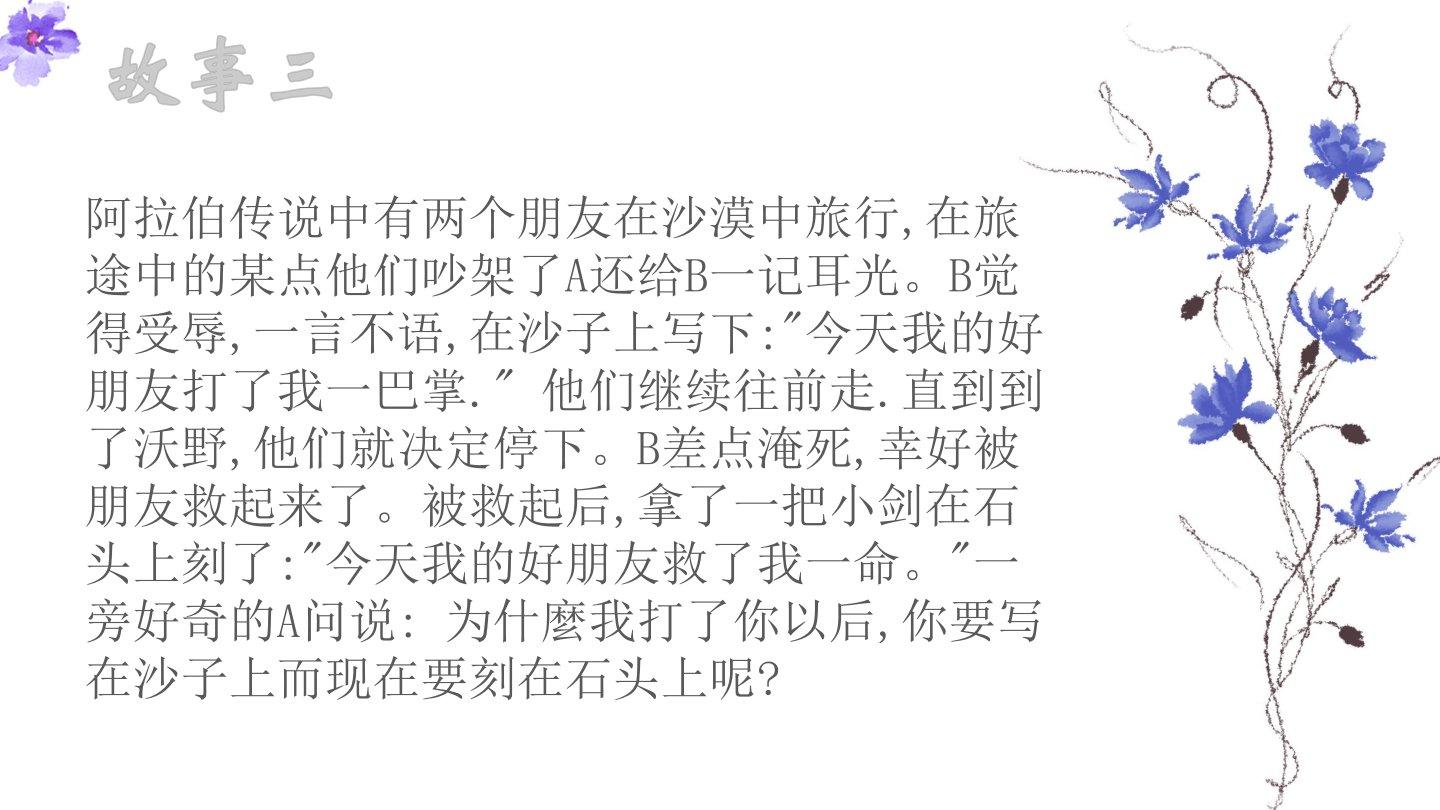 故事三
阿拉伯传说中有两个朋友在沙漠中旅行,在旅
途中的某点他们吵架了A还给B一记耳光。B觉
得受辱,一言不语,在沙子上写下:"今天我的好
朋友打了我一巴掌." 他们继续往前走.直到到
了沃野,他们就决定停下。B差点淹死,幸好被
朋友救起来了。被救起后,拿了一把小剑在石
头上刻了:"今天我的好朋友救了我一命。"一
旁好奇的A问说: 为什麽我打了你以后,你要写
在沙子上而现在要刻在石头上呢?